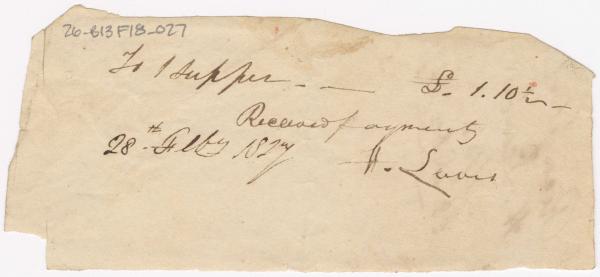 26-B13F18-027
To 1 Supper - - £ - 1.10½ -
Received payment
28th Feby 1827 H. Lewis